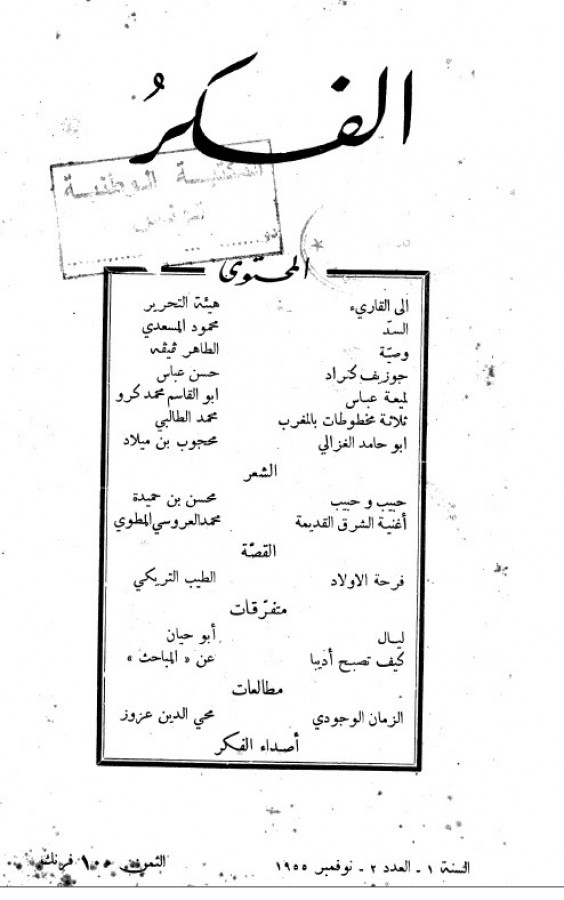 الفكرُ
المكتبة الوطنية
تونس
المحتوى
الى القاريء هيئة التحرير
السدّ محمود المسعدي
وصيّة الطاهر ثيقه
جوزيف كنراد حسن عباس
لميعة عباس ابو القاسم محمد كرو
ثلاثة مخطوطات بالمغرب محمد الطالبي
ابو حامد الغزالي محجوب بن ميلاد
الشعر
حبيب و حبيب محسن بن حميدة
أغنية الشرق القديمة محمد العروسي المطوي
القصّة
فرحة الاولاد الطيب التريكي
متفرّقات
ليال أبو حيان
كيف تصبح أديبا عن « المباحث »
مطالعات
الزمان الوجودي محي الدين عزوز
أصداء الفكر
السنة ١ - العدد ٢ - نوفمبر ١٩٥٥ الثمن ١٠٠ فرنك